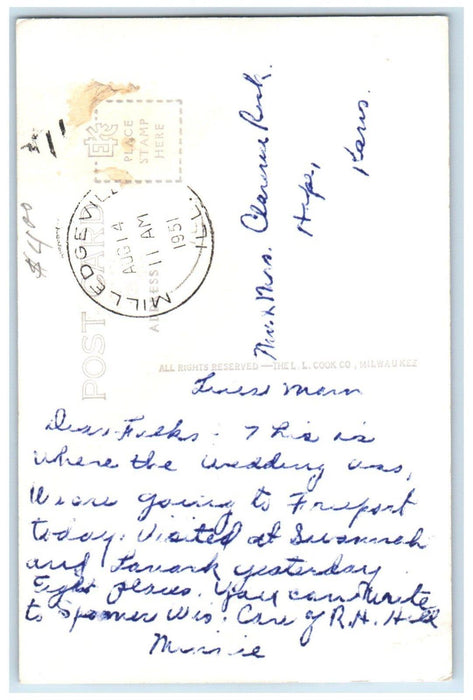 Dear Folks: This is
where the wedding was,
We are going to Freeport
today. Visited at Savannah
and Lanark yesterday.
You can write
to Spooner Wis. Care of R.H. Hill
Minnie
Mr. & Mrs. Clarence
Hope,
Kans.
EKC
PLACE
STAMP
HERE
MILLEDGEVILLE
ILL.
AUG 14
11 AM
1951
POST CARD
ADDRESS
ALL RIGHTS RESERVED — THE L. L. COOK CO., MILWAUKEE
$4.00